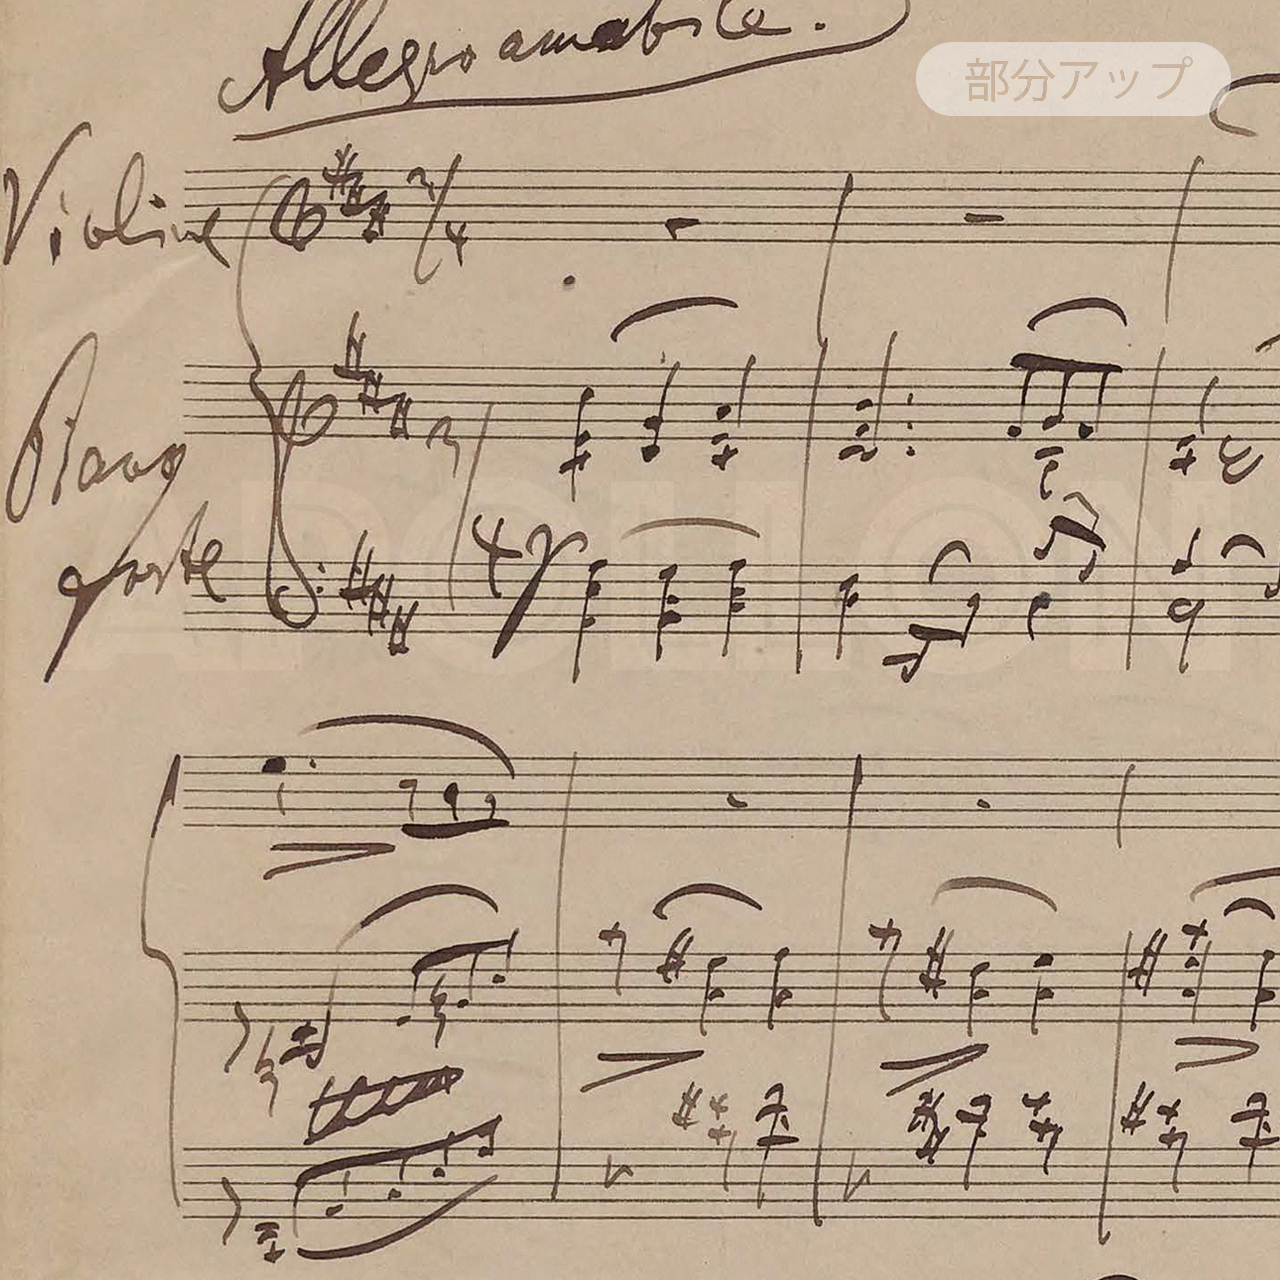 Allegro amabile.
部分アップ
Violine
3/4
Piano
forte
3
4
APOLLON